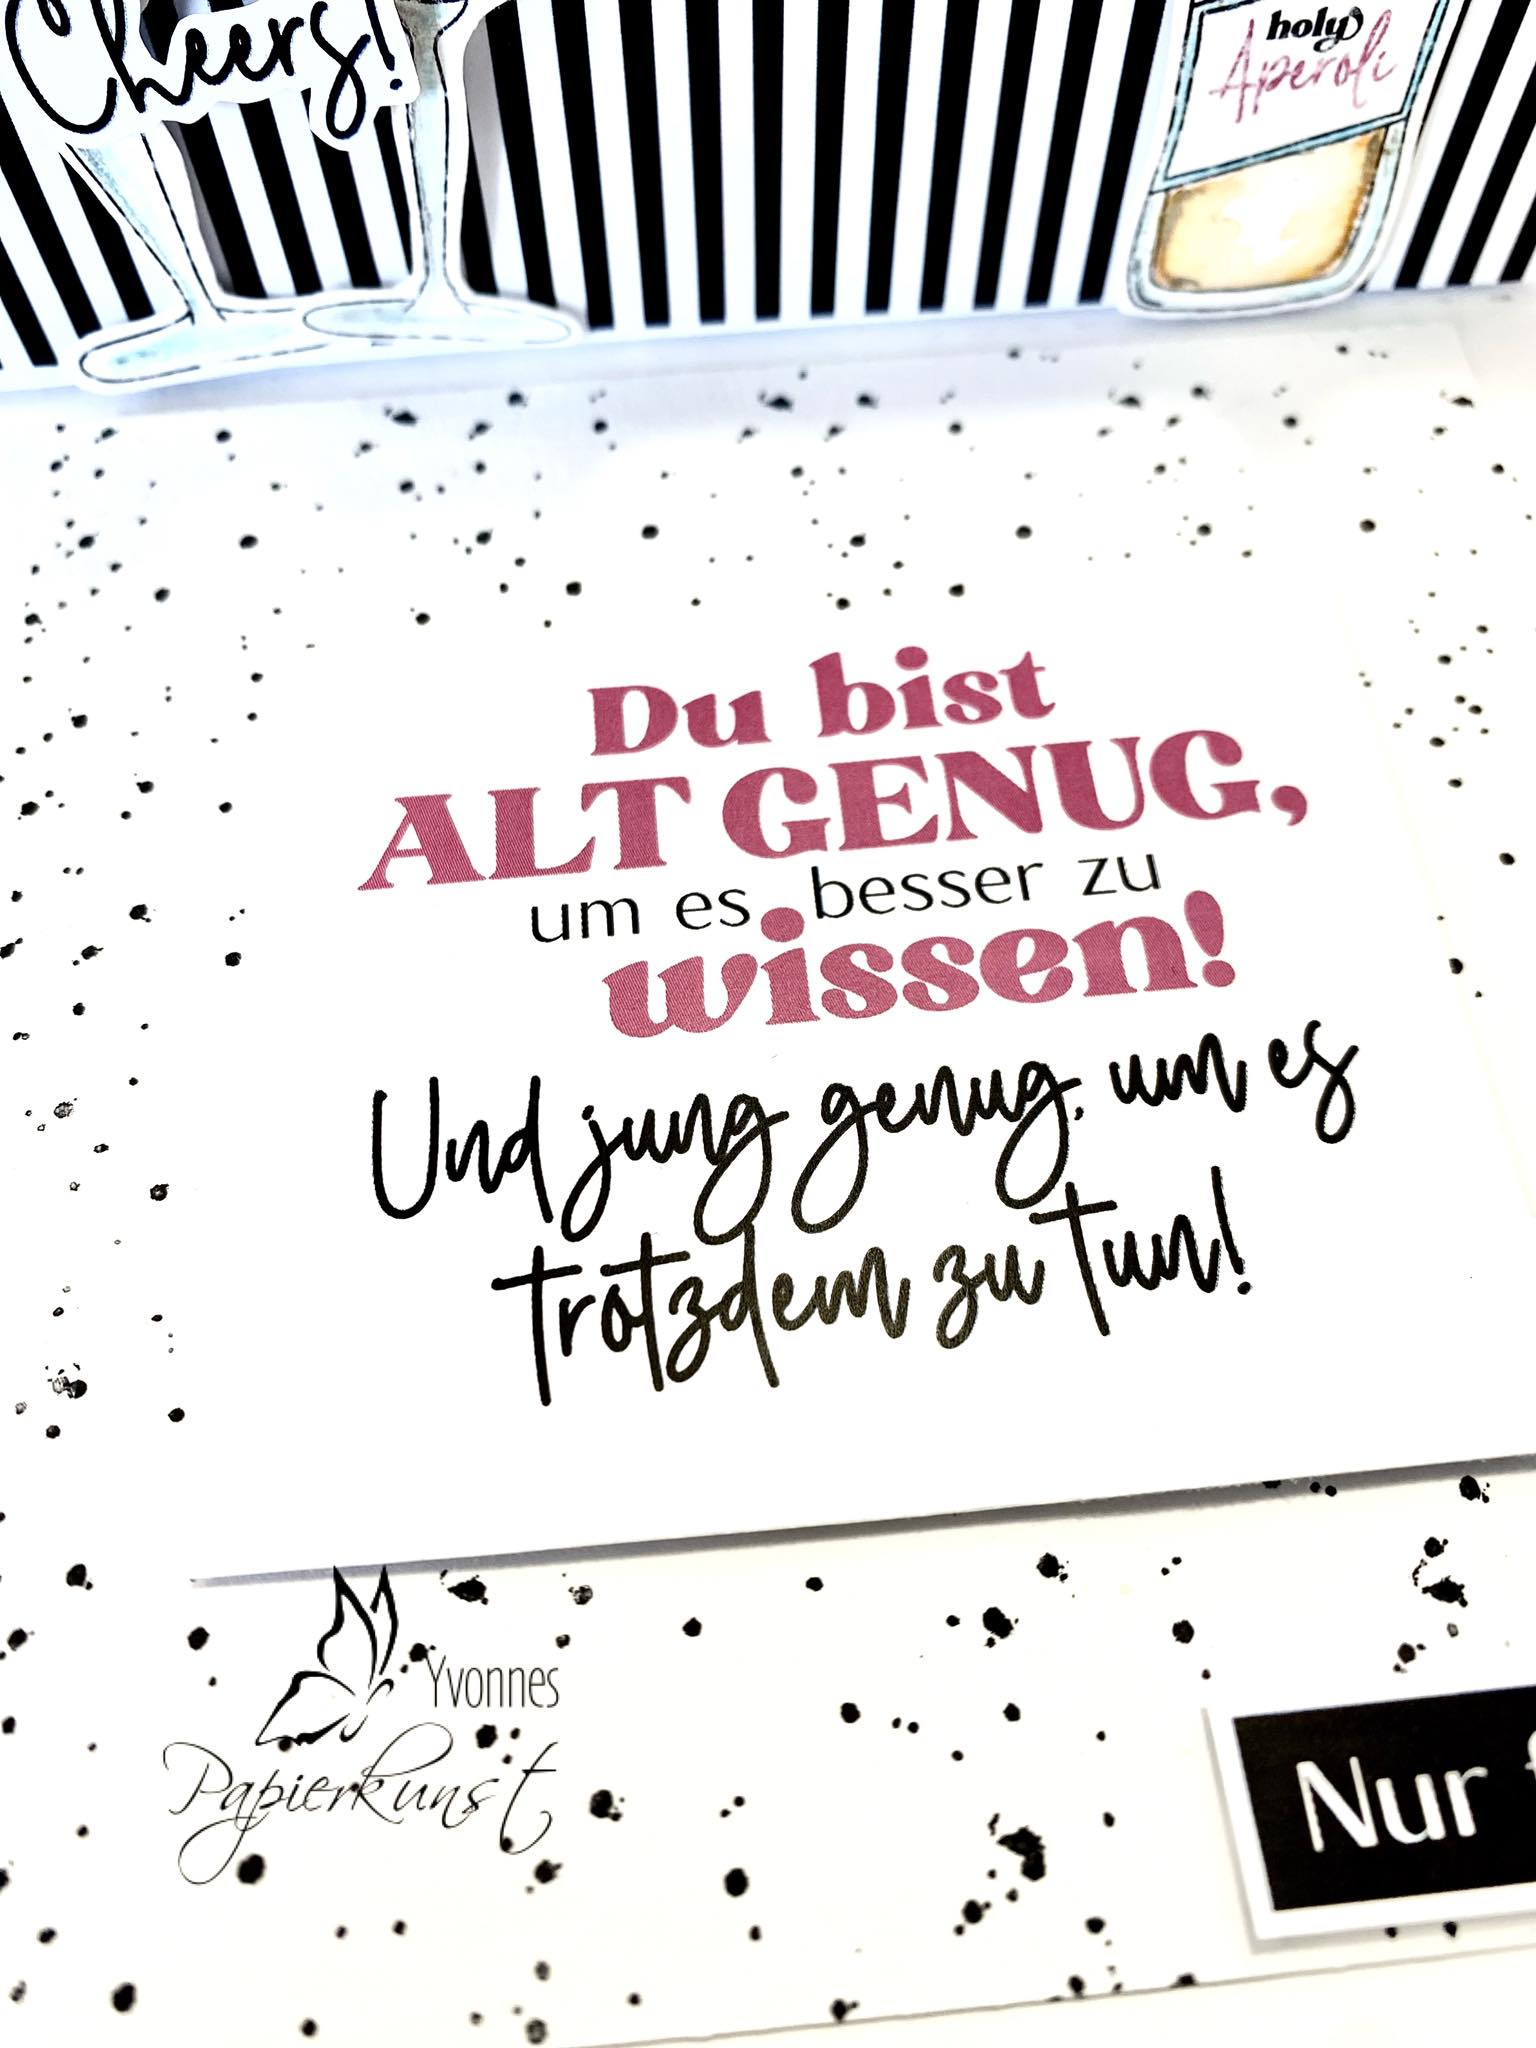 Cheers!
holy
Aperoli
Du bist
ALT GENUG,
um es besser zu
wissen!
Und jung genug, um es
trotzdem zu tun!
Yvonnes
Papierkunst
Nur